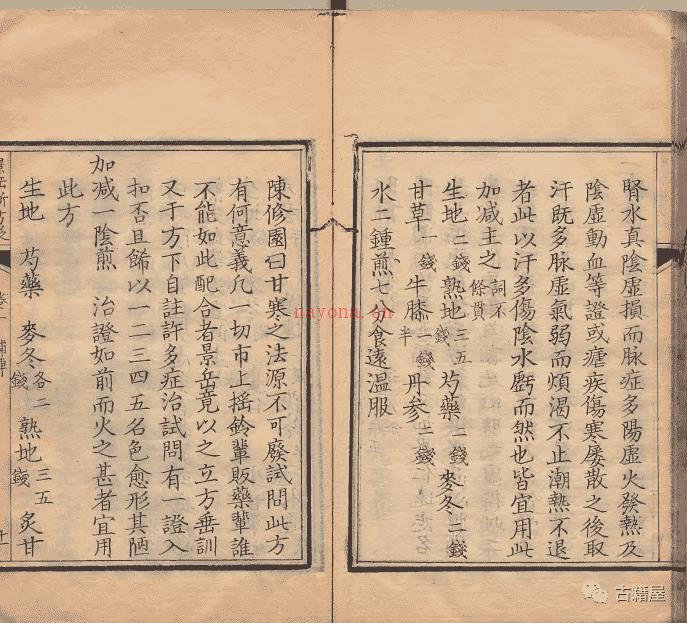 腎水真陰虛損而脉症多陽虛火發熱及
陰虛動血等證或瘧疾傷寒屢散之後取
汗既多脉虛氣弱而煩渴不止潮熱不退
者此以汗多傷陰水虧而然也皆宜用此
加减主之詞不條貫
生地二錢熟地三五錢芍藥二錢麥冬二錢
甘草一錢牛膝一錢半丹參二錢
水二鍾煎七分食遠温服
陳修園曰甘寒之法源不可廢試問此方
有何意義凡一切市上摇鈴輩販藥輩誰
不能如此配合者景岳竟以之立方垂訓
又于方下自註許多症治試問有一證入
扣否且餙以一二三四五名色愈形其陋
加减一陰煎 治證如前而火之甚者宜用
此方
生地 芍藥 麥冬各二錢 熟地三五錢 炙甘
nayona.cn
古籍屋